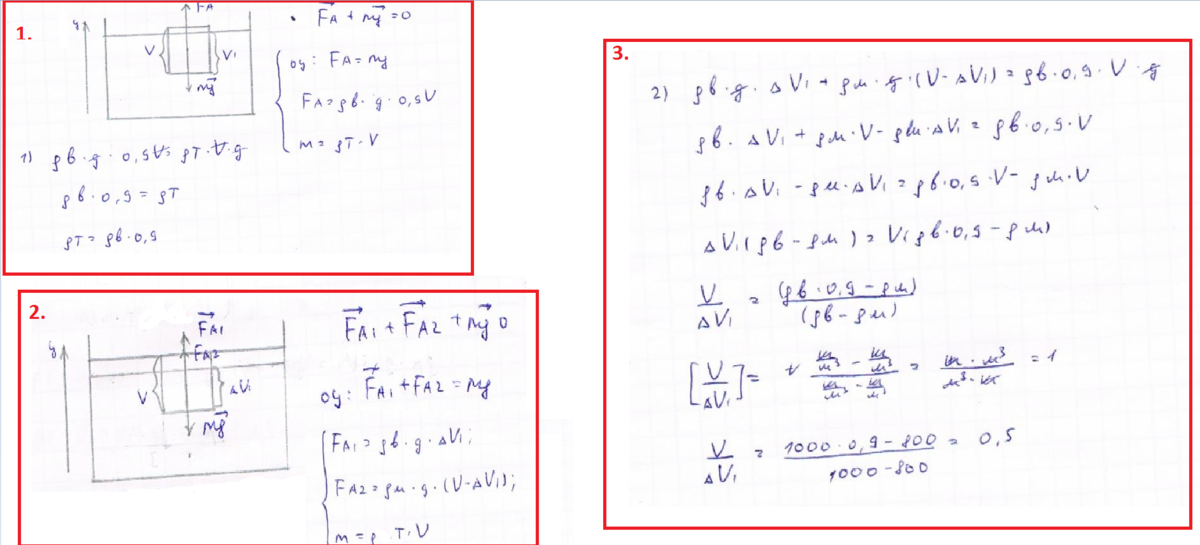 1.
y
FA
V
V₁
mg
FA + mg = 0
oy: FA = mg
FA = ρв · g · 0,9V
m = ρT · V
1) ρв · g · 0,9V = ρT · V · g
ρв · 0,9 = ρT
ρT = ρв · 0,9
2.
y
FA1
FA2
V
ΔV₁
mg
FA1 + FA2 + mg 0
oy: FA1 + FA2 = mg
FA1 = ρв · g · ΔV₁;
FA2 = ρм · g · (V - ΔV₁);
m = ρ T · V
3.
2) ρв · g · ΔV₁ + ρм · g · (V - ΔV₁) = ρв · 0,9 · V · g
ρв · ΔV₁ + ρм · V - ρм · ΔV₁ = ρв · 0,9 · V
ρв · ΔV₁ - ρм · ΔV₁ = ρв · 0,9 · V - ρм · V
ΔV₁ (ρв - ρм) = V (ρв · 0,9 - ρм)
V/ΔV₁ = (ρв · 0,9 - ρм)/(ρв - ρм)
[V/ΔV₁] = (кг/м³ - кг/м³)/(кг/м³ - кг/м³) = (кг · м³)/(м³ · кг) = 1
V/ΔV₁ = (1000 · 0,9 - 800)/(1000 - 800) = 0,5